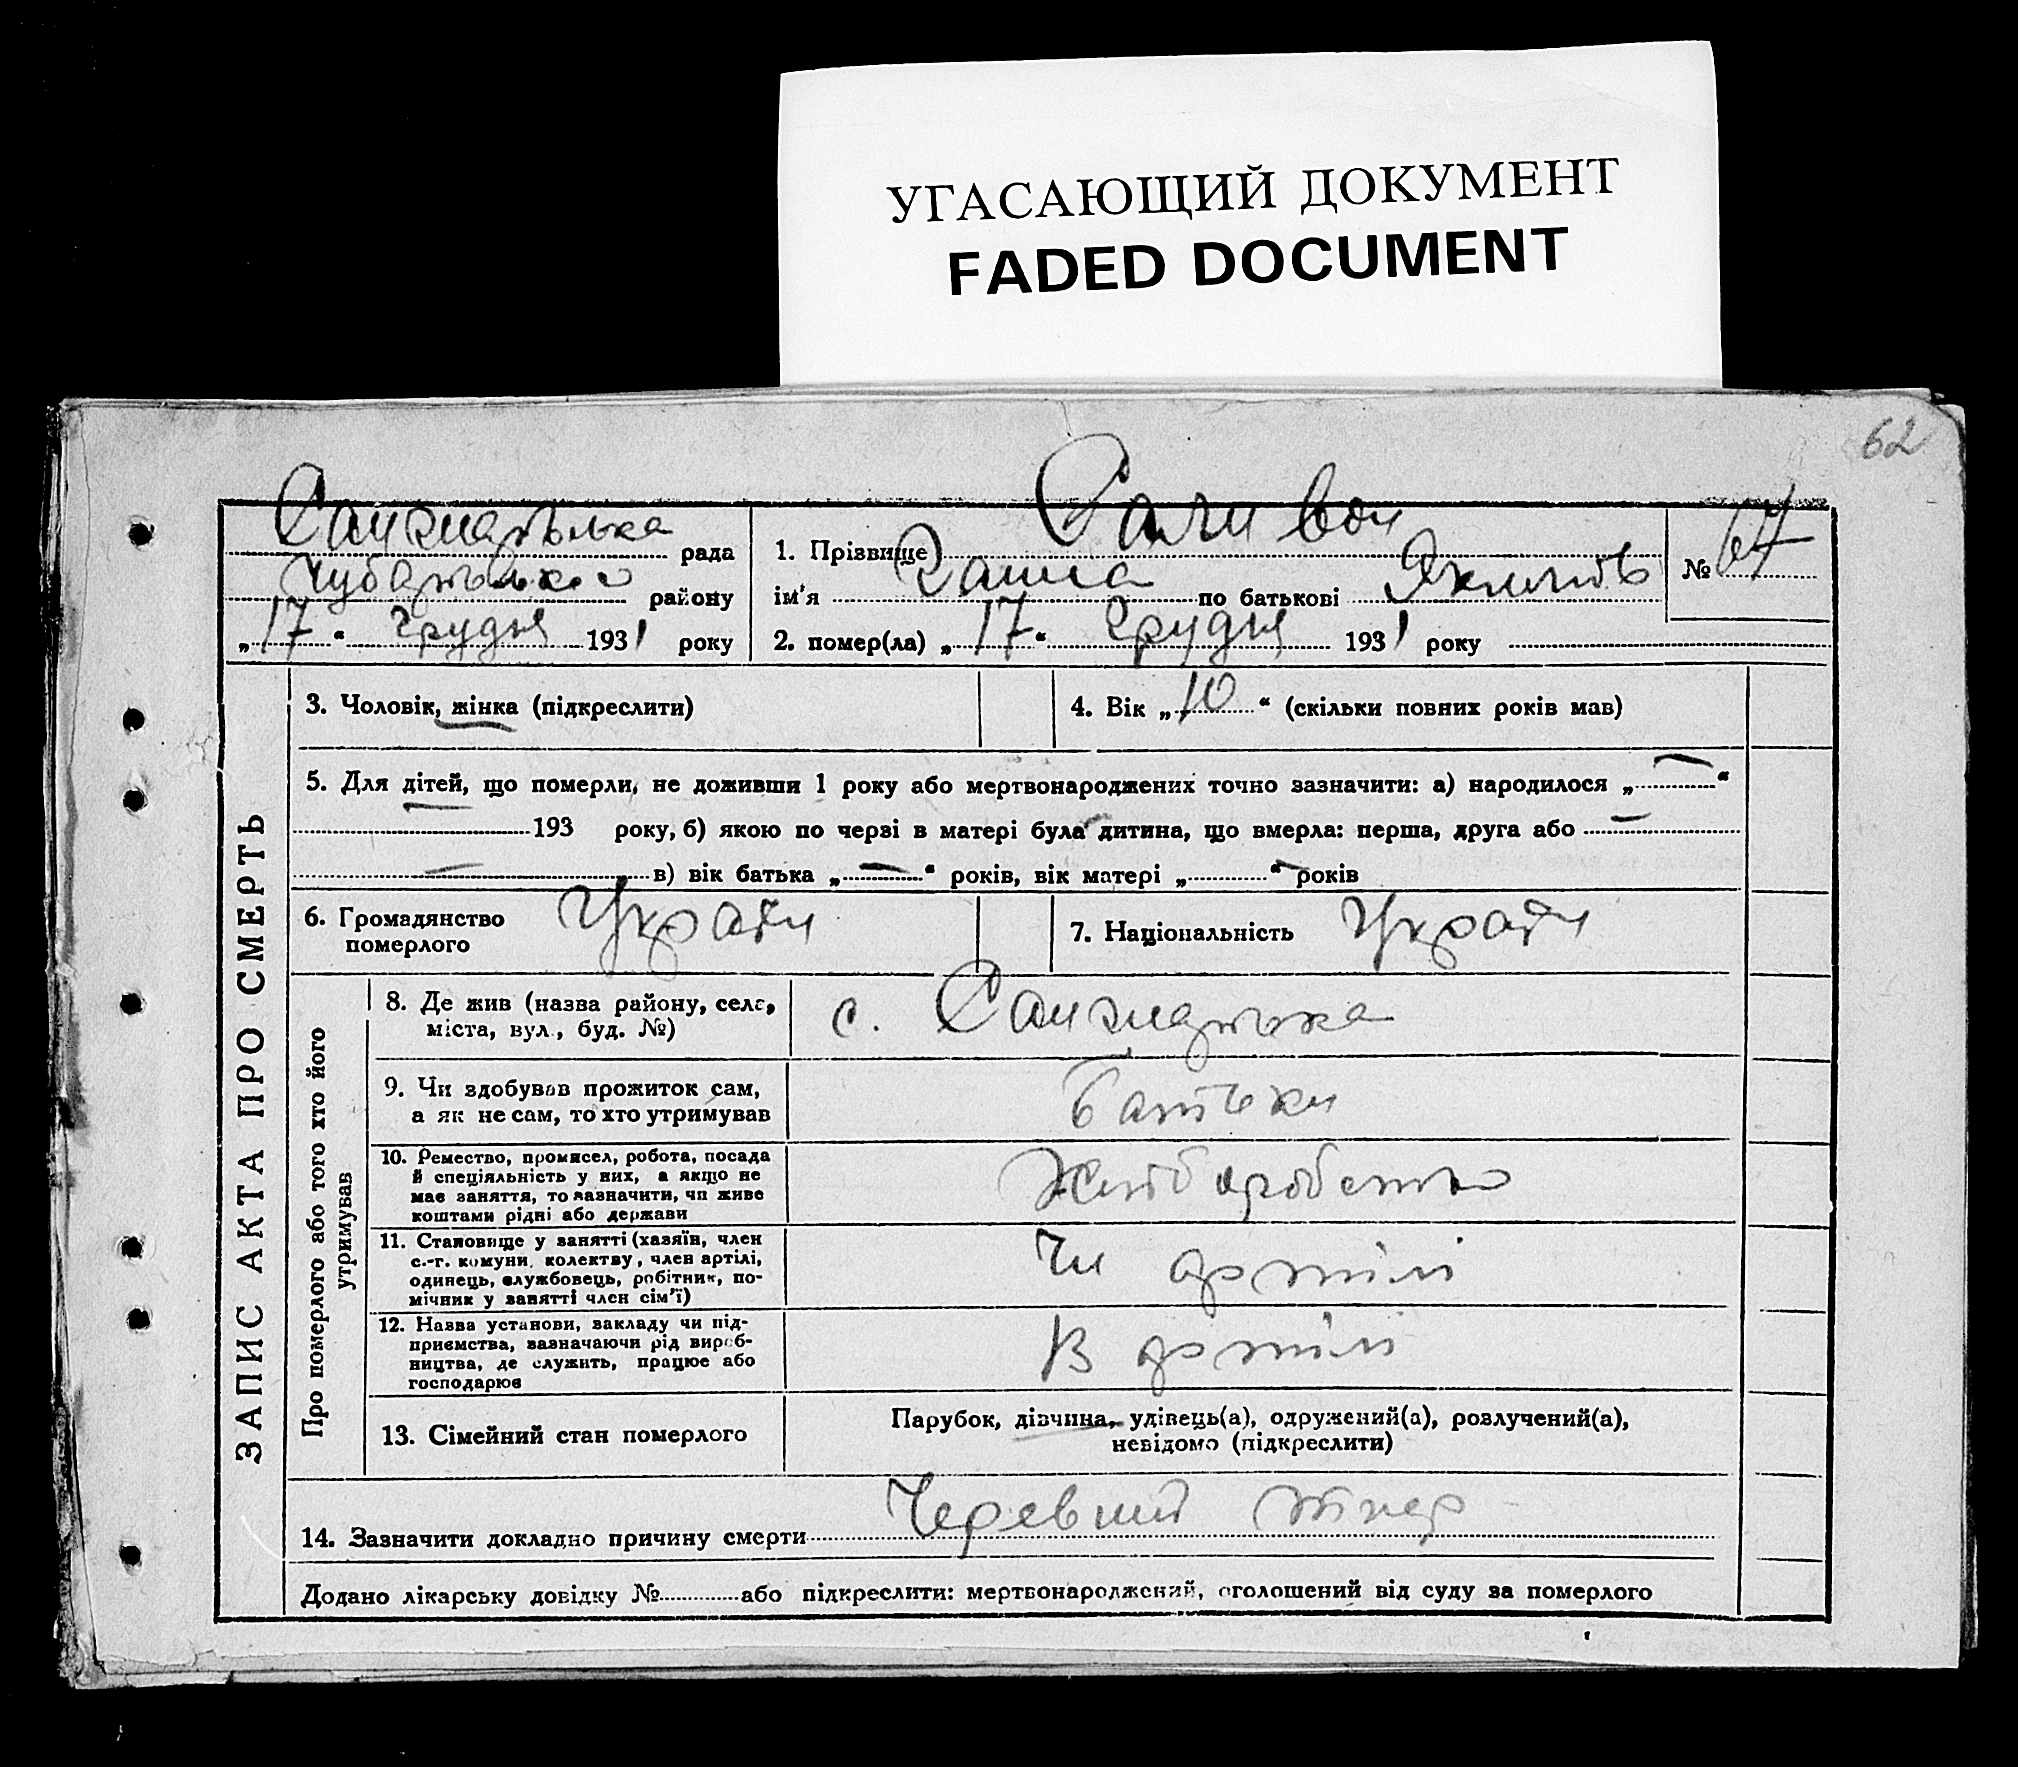 УГАСАЮЩИЙ ДОКУМЕНТ
FADED DOCUMENT
62
рада
району
„ 17 “ Грудня 1931 року
1. Прізвище Саливон
ім'я по батькові
2. помер(ла) „ 17 “ Грудня 1931 року
№ 67
ЗАПИС АКТА ПРО СМЕРТЬ
3. Чоловік, жінка (підкреслити)
4. Вік „ 10 “ (скільки повних років мав)
5. Для дітей, що померли, не доживши 1 року або мертвонароджених точно зазначити: а) народилося „ — “
193 року, б) якою по черзі в матері була дитина, що вмерла: перша, друга або —
— в) вік батька „ — “ років, вік матері „ “ — років
6. Громадянство
померлого
Україн
7. Національність Україн
Про померлого або того хто його
утримував
8. Де жив (назва району, села,
міста, вул., буд. №)
с.
9. Чи здобував прожиток сам,
а як не сам, то хто утримував
Батьки
10. Ремество, промисел, робота, посада
й спеціяльність у них, а якщо не
має заняття, то зазначити, чи живе
коштами рідні або держави
11. Становище у занятті (хазяїн, член
с.-г. комуни, колективу, член артілі,
одинець, службовець, робітник, по-
мічник у занятті член сім'ї)
Чл артілі
12. Назва установи, закладу чи під-
приємства, зазначаючи рід вироб-
ництва, де служить, працює або
господарює
В артілі
13. Сімейний стан померлого
Парубок, дівчина, удівець(а), одружений(а), розлучений(а),
невідомо (підкреслити)
14. Зазначити докладно причину смерти Черевний
Додано лікарську довідку № або підкреслити: мертвонароджений, оголошений від суду за померлого